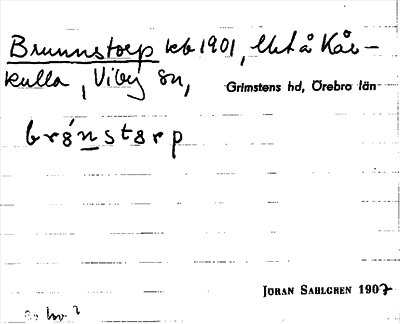 Brunnstorp kb 1901, Uht å Kår-
kulla, Viby sn,
Grimstens hd, Örebro län
brǿnstɵrp
JÖRAN SAHLGREN 1907